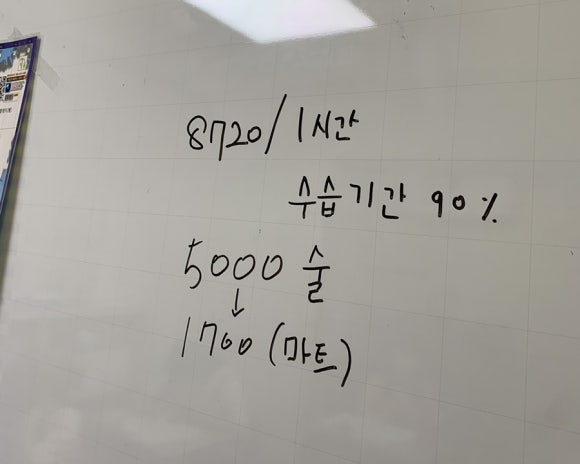 8720/1시간
수습기간 90%
5000 술
↓
1700 (마트)